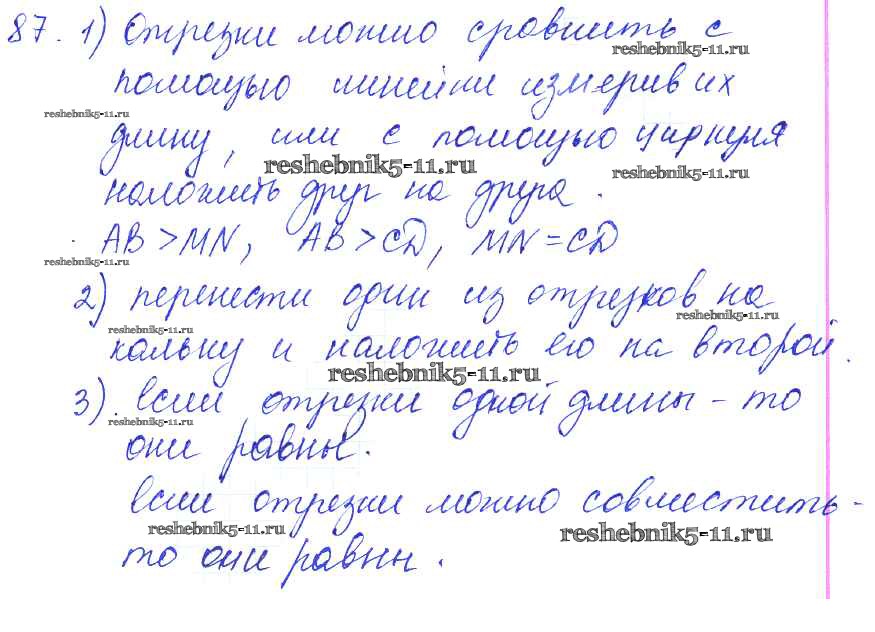 87. 1) Отрезки можно сравнить с
reshebnik5-11.ru
помощью линейки измерив их
reshebnik5-11.ru
длину, или с помощью циркуля
reshebnik5-11.ru
reshebnik5-11.ru
наложить друг на друга.
AB > MN, AB > CD, MN = CD
reshebnik5-11.ru
2) перенести один из отрезков на
reshebnik5-11.ru
reshebnik5-11.ru
кальку и наложить его на второй.
reshebnik5-11.ru
3). если отрезки одной длины - то
reshebnik5-11.ru
они равны.
если отрезки можно совместить -
reshebnik5-11.ru
reshebnik5-11.ru
то они равны.